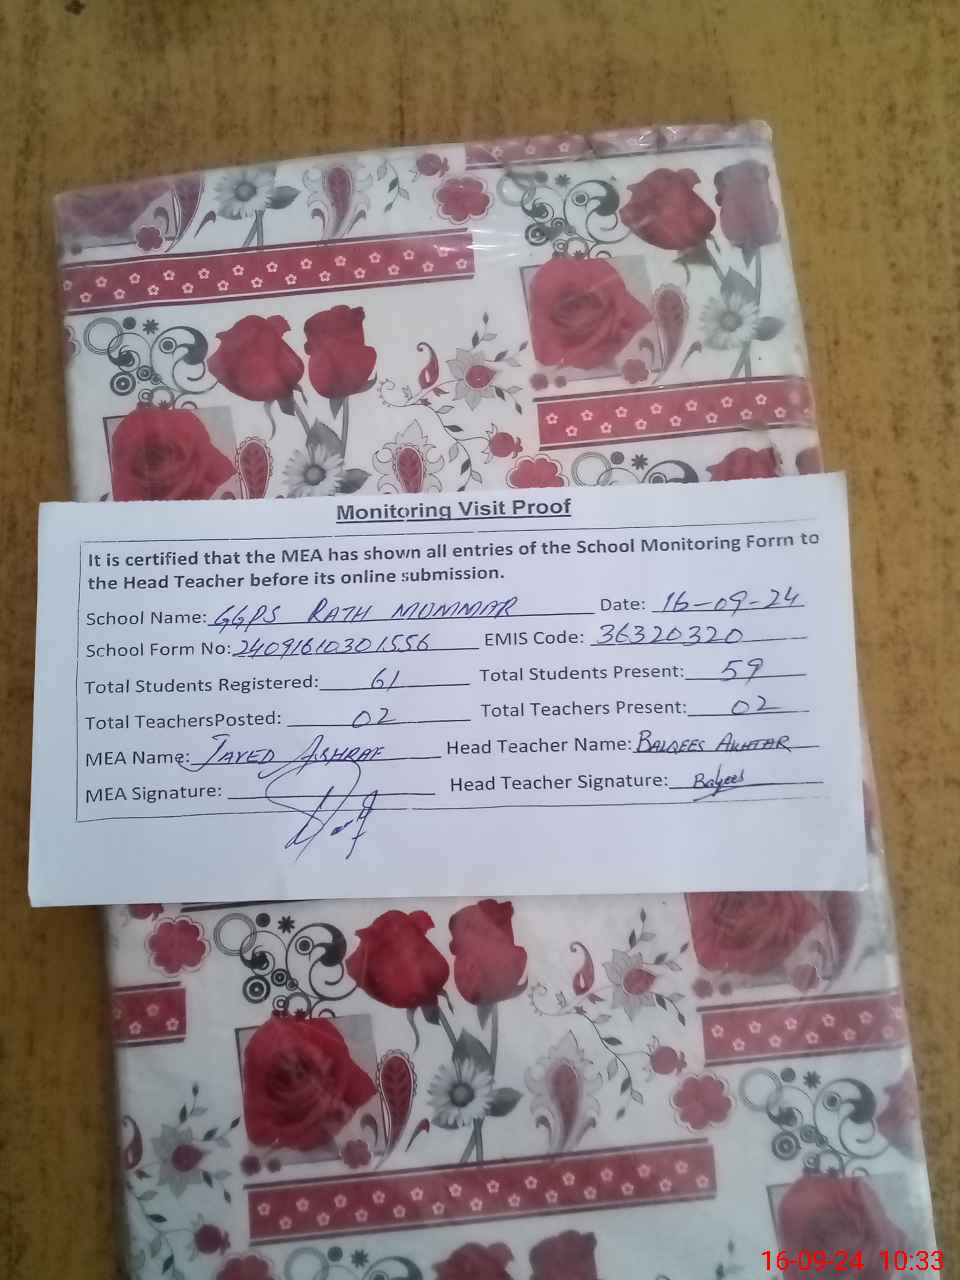 Monitoring Visit Proof
It is certified that the MEA has shown all entries of the School Monitoring Form to
the Head Teacher before its online submission.
School Name: GGPS RATH MOMMAR Date: 16-09-24
School Form No: 24091610301556 EMIS Code: 36320320
Total Students Registered: 61 Total Students Present: 59
Total TeachersPosted: 02 Total Teachers Present: 02
MEA Name: JAVED ASHRAF Head Teacher Name: BALQEES AKHTAR
MEA Signature: Head Teacher Signature: Balqees
16-09-24 10:33